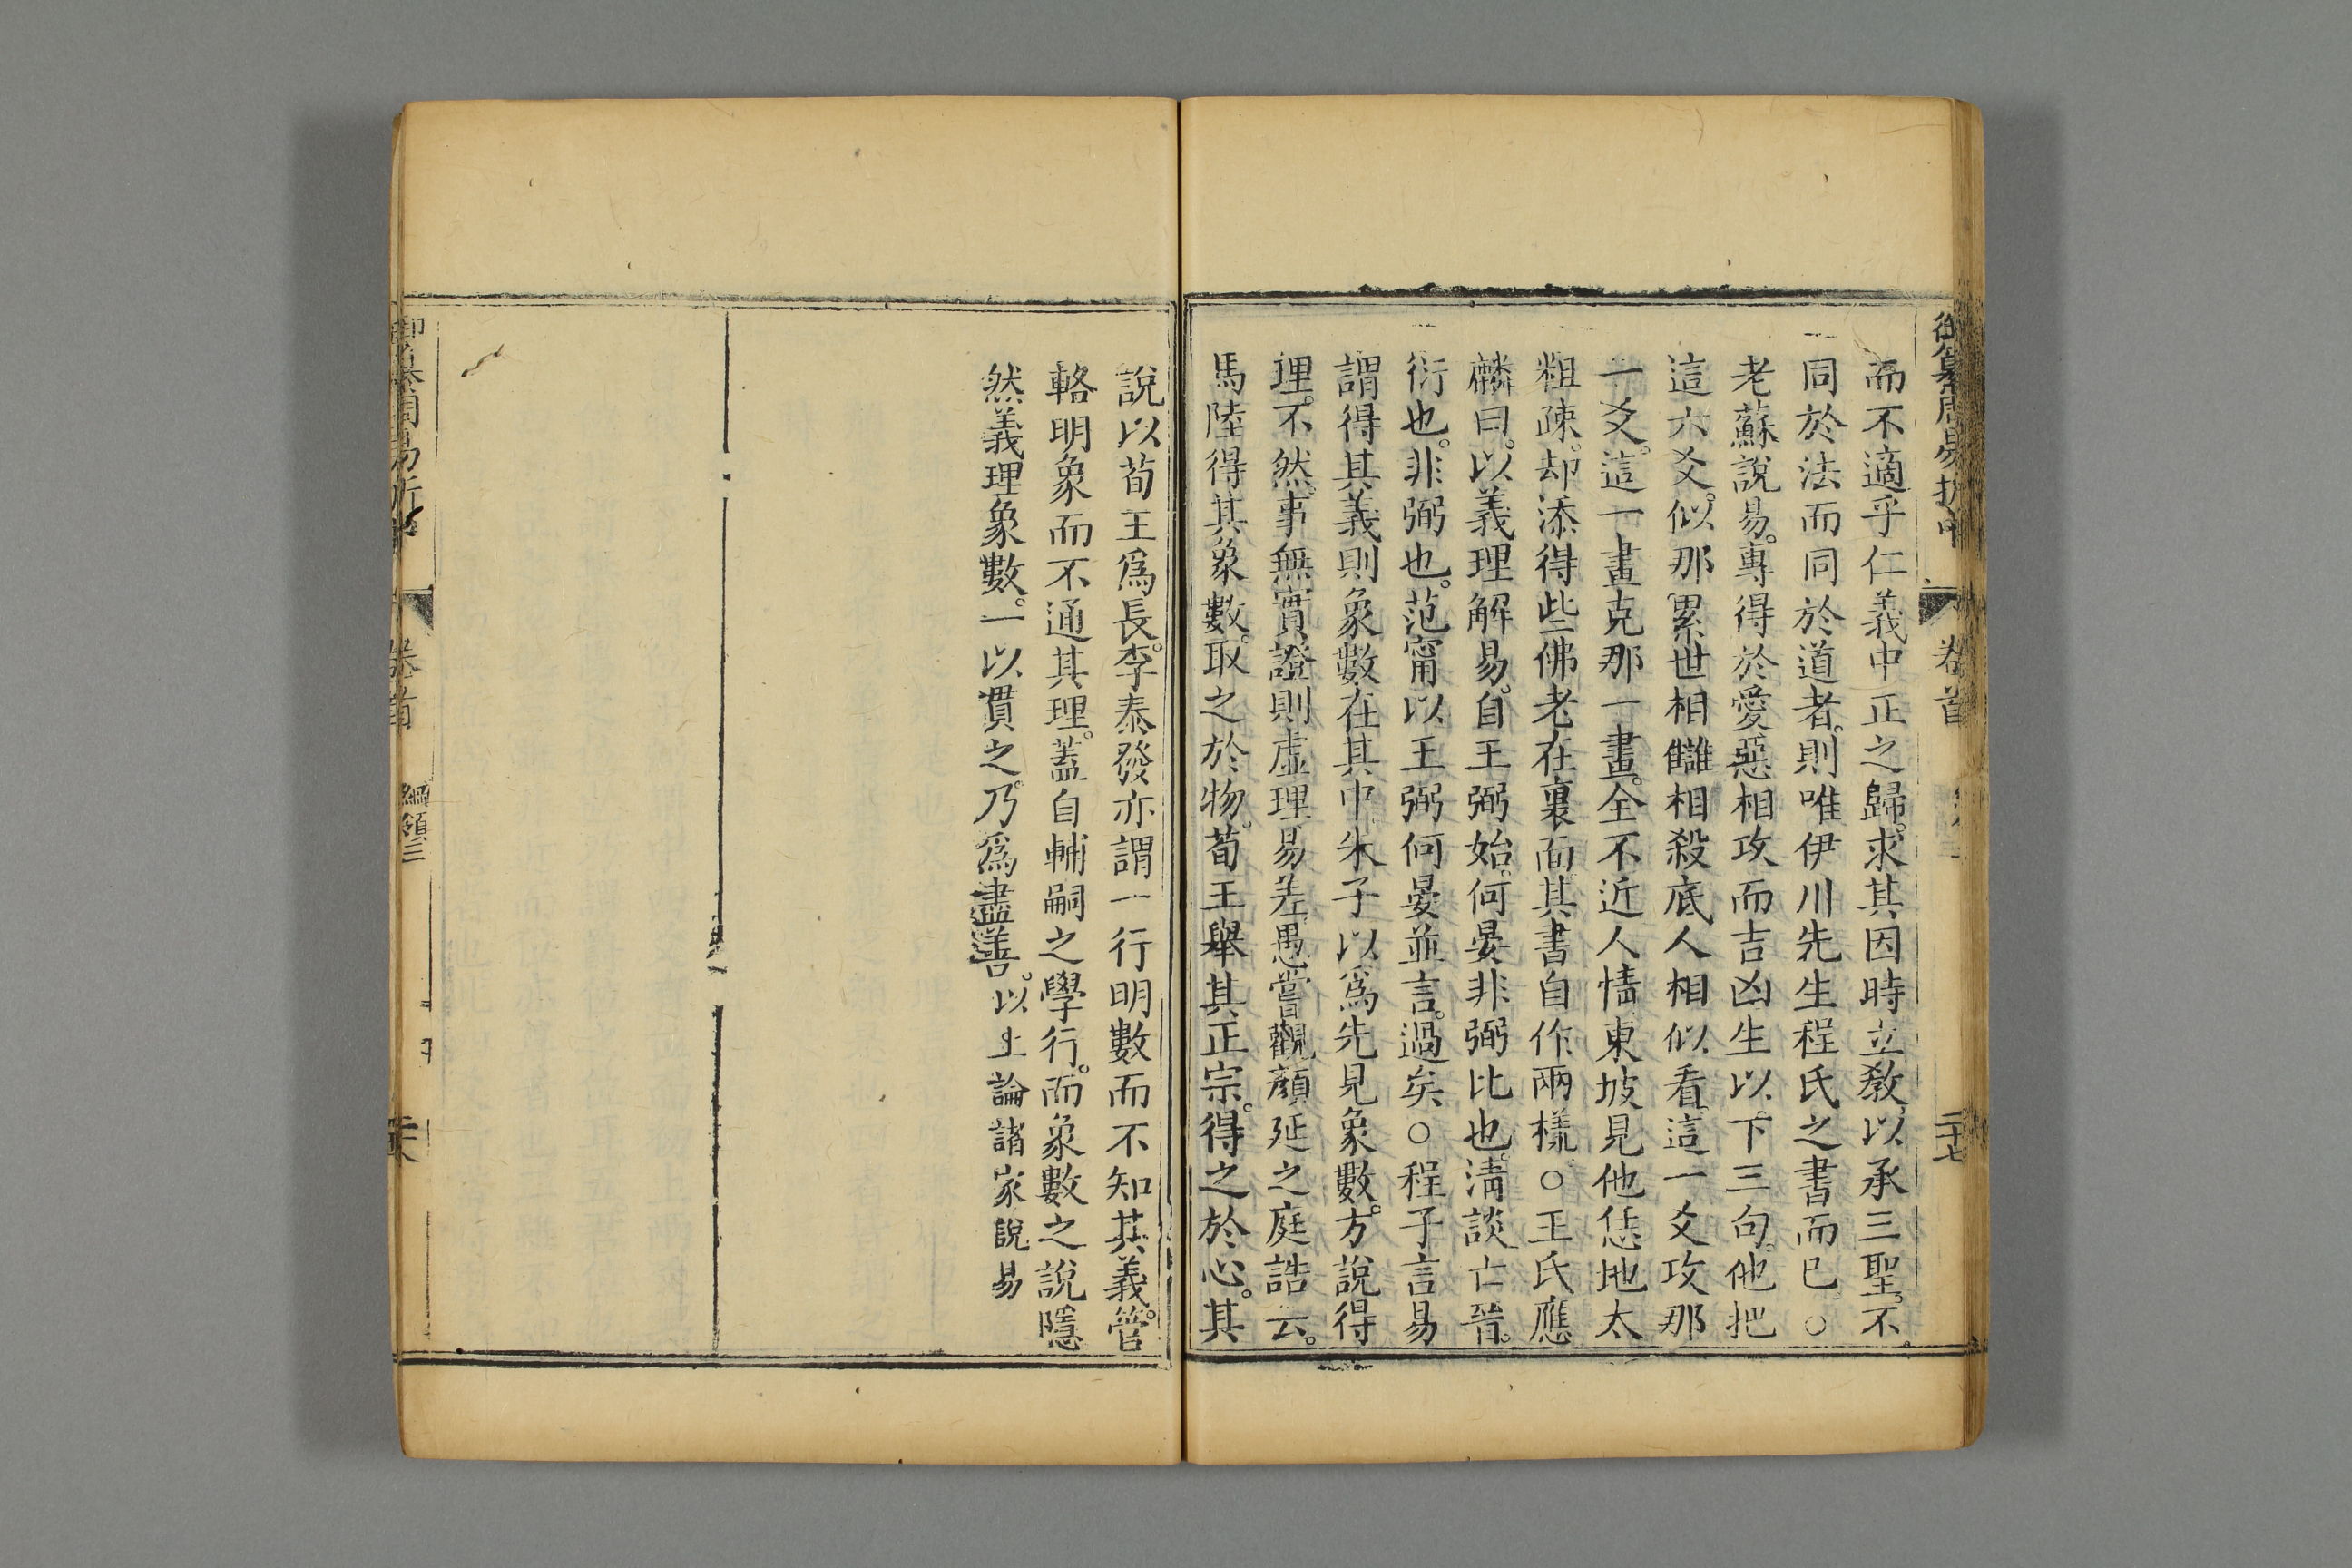 御纂周易折中 卷首 二十七
而不適乎仁義中正之歸。求其因時立敎以承三聖。不
同於法而同於道者。則唯伊川先生程氏之書而已。○
老蘇說易。專得於愛惡相攻而吉凶生以下三句。他把
這六爻。似那累世相讎相殺底人相似看。這一爻攻那
一爻。這一畫克那一畫。全不近人情。東坡見他恁地太
粗疎。却添得些佛老在裏面。其書自作兩樣。○王氏應
麟曰。以義理解易。自王弼始。何晏非弼比也。淸談亡晉。
衍也。非弼也。范甯以王弼何晏並言。過矣。○程子言易
謂得其義則象數在其中朱子以爲先見象數。方說得
理。不然。事無實證則虛理易差。愚嘗觀顏延之庭誥云。
馬陸得其象數。取之於物。荀王舉其正宗。得之於心。其
說以荀王爲長。李泰發亦謂一行明數而不知其義。管
輅明象而不通其理。蓋自輔嗣之學行。而象數之說隱
然義理象數。一以貫之。乃爲盡善。以上論諸家說易
御纂周易折中 卷首 綱領三